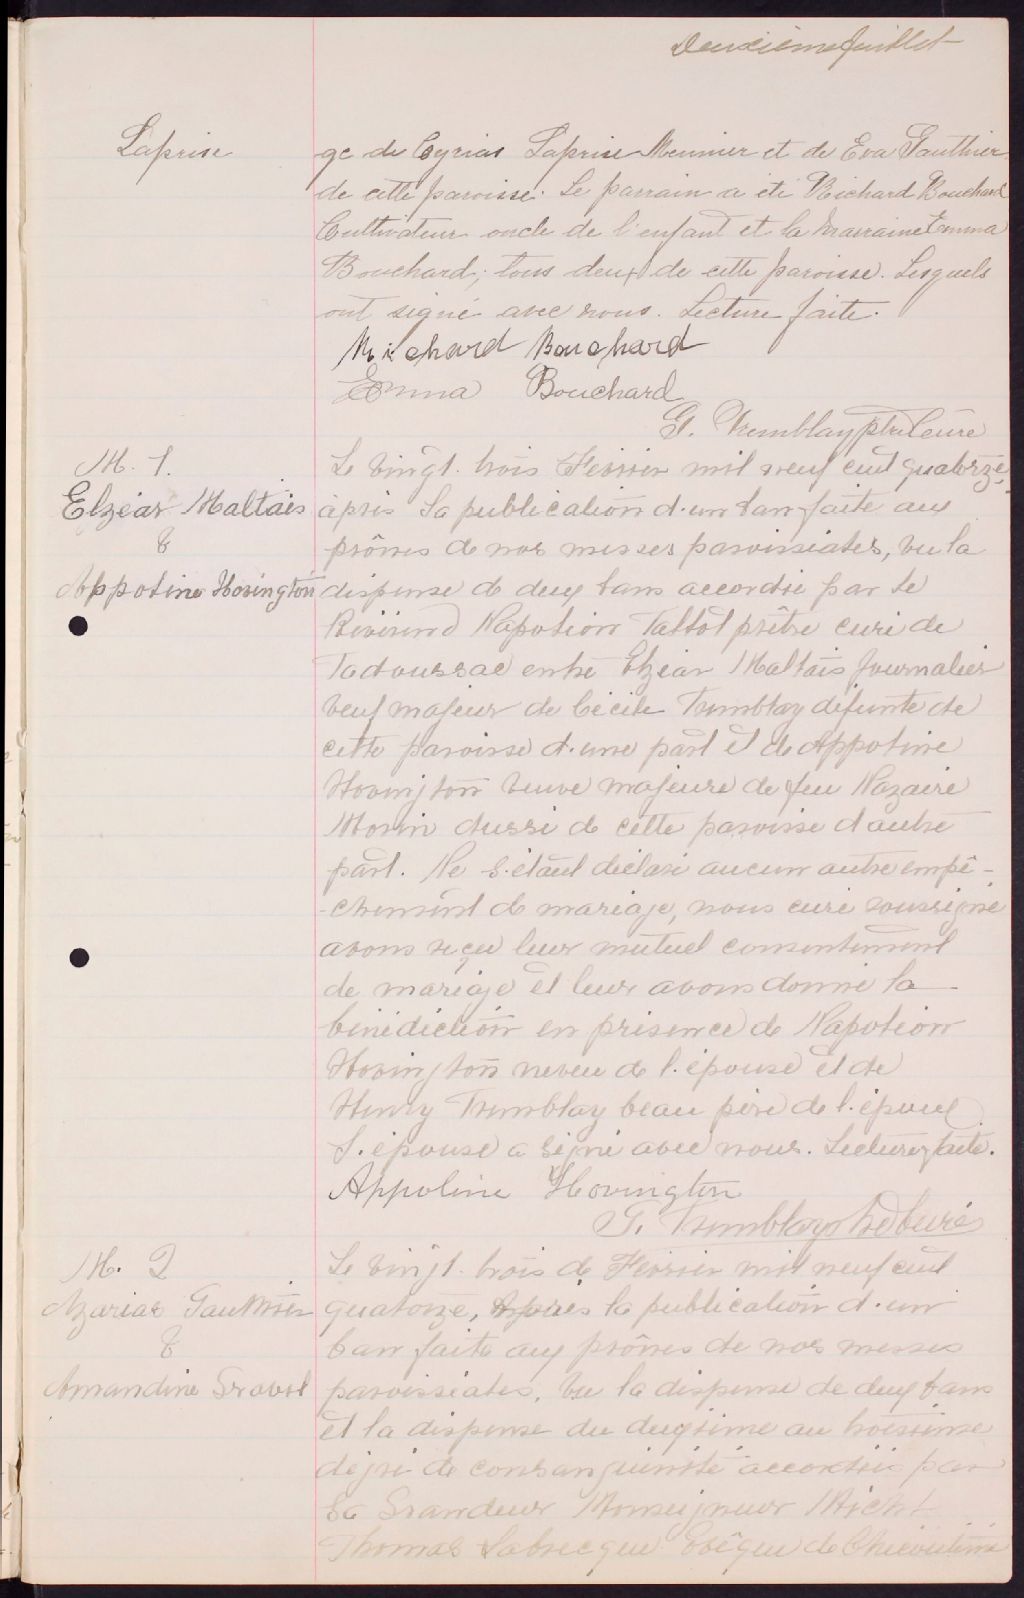 Deuxième feuillet
Laprise
ge de Cyrias Laprise Meunier et de Eva Gauthier
de cette paroisse. Le parrain a été Richard Bouchard
Cultivateur oncle de l'enfant et la Marraine Emma
Bouchard, tous deux de cette paroisse. Lesquels
ont signé avec nous. Lecture faite.
Richard Bouchard
Emma Bouchard
G. Tremblay ptre Curé
M. 1.
Elzéar Maltais
&
Appoline Hovington
Le vingt-trois Février mil neuf cent quatorze,
après la publication d'un ban faite aux
prônes de nos messes paroissiales, vu la
dispense de deux bans accordée par le
Révérend Napoléon Talbot prêtre curé de
Tadoussac entre Elzéar Maltais Journalier
veuf majeur de Cécile Tremblay défunte de
cette paroisse d'une part et de Appoline
Hovington veuve majeure de feu Nazaire
Morin aussi de cette paroisse d'autre
part. Ne s'étant déclaré aucun autre empê-
-chement de mariage, nous curé soussigné
avons reçu leur mutuel consentement
de mariage et leur avons donné la
bénédiction en présence de Napoléon
Hovington neveu de l'épouse et de
Henry Tremblay beau père de l'époux
L'épouse a signé avec nous. Lecture faite.
Appoline Hovington
G. Tremblay Ptre Curé
M. 2
Azarias Gauthier
&
Amandine Gravel
Le vingt-trois de Février mil neuf cent
quatorze, Après la publication d'un
ban faite aux prônes de nos messes
paroissiales, vu la dispense de deux bans
et la dispense du deuxième au troisième
degré de consanguinité accordée par
Sa Grandeur Monseigneur Michel
Thomas Labrecque Evêque de Chicoutimi